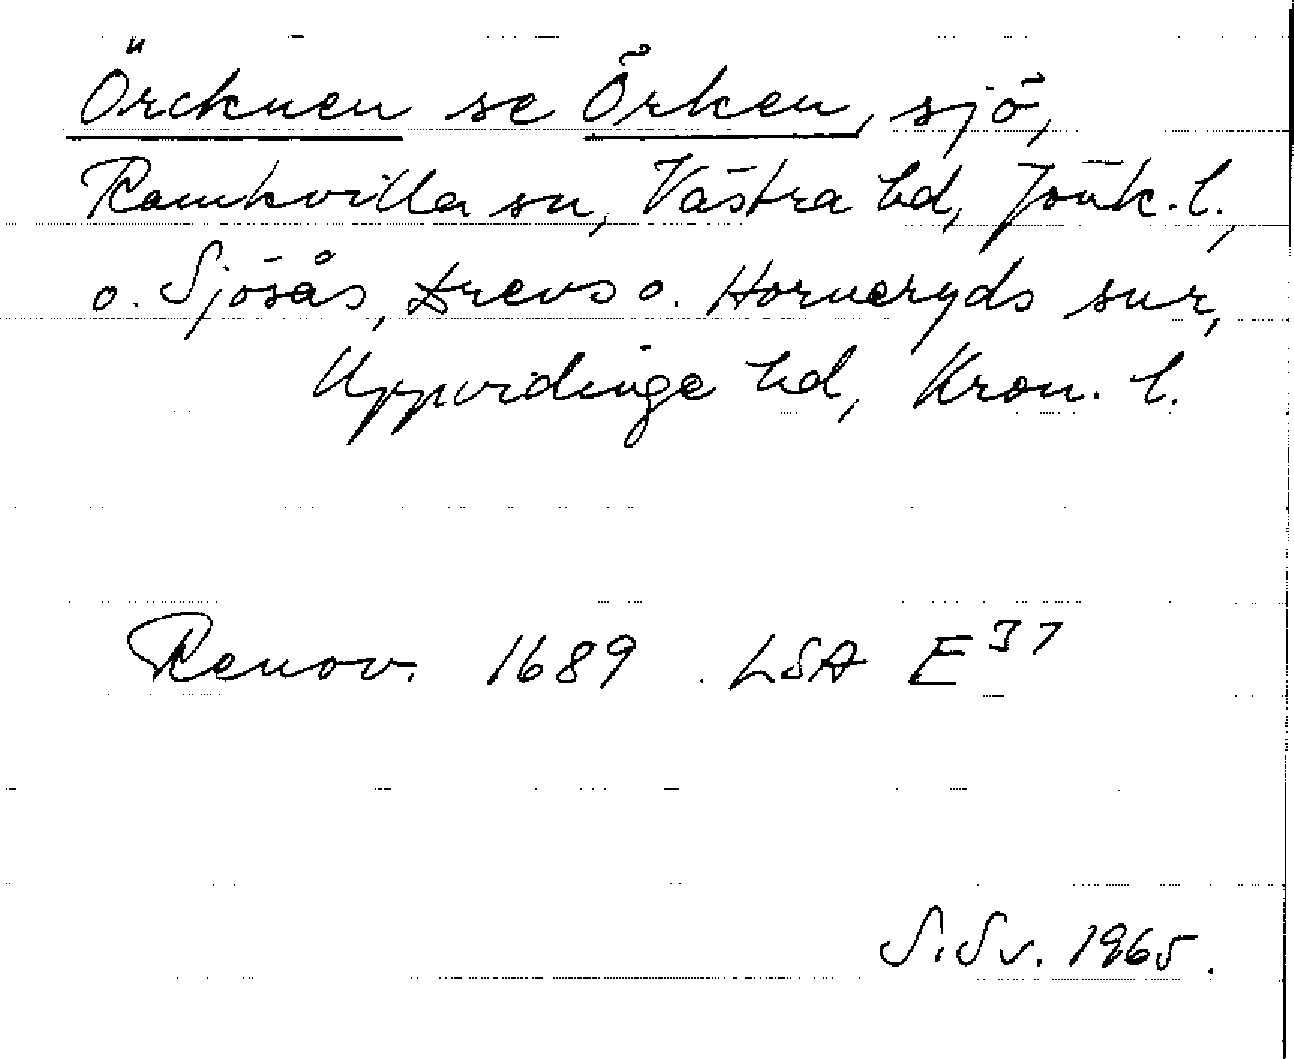 Örcknen se Örken, sjö,
Ramkvilla sn, Västra hd, Jönk. l.,
o. Sjösås, Drevs o. Horneryds snr,
Uppvidinge hd, Kron. l.
Renov. 1689 LSA E 37
S. Sv. 1965.